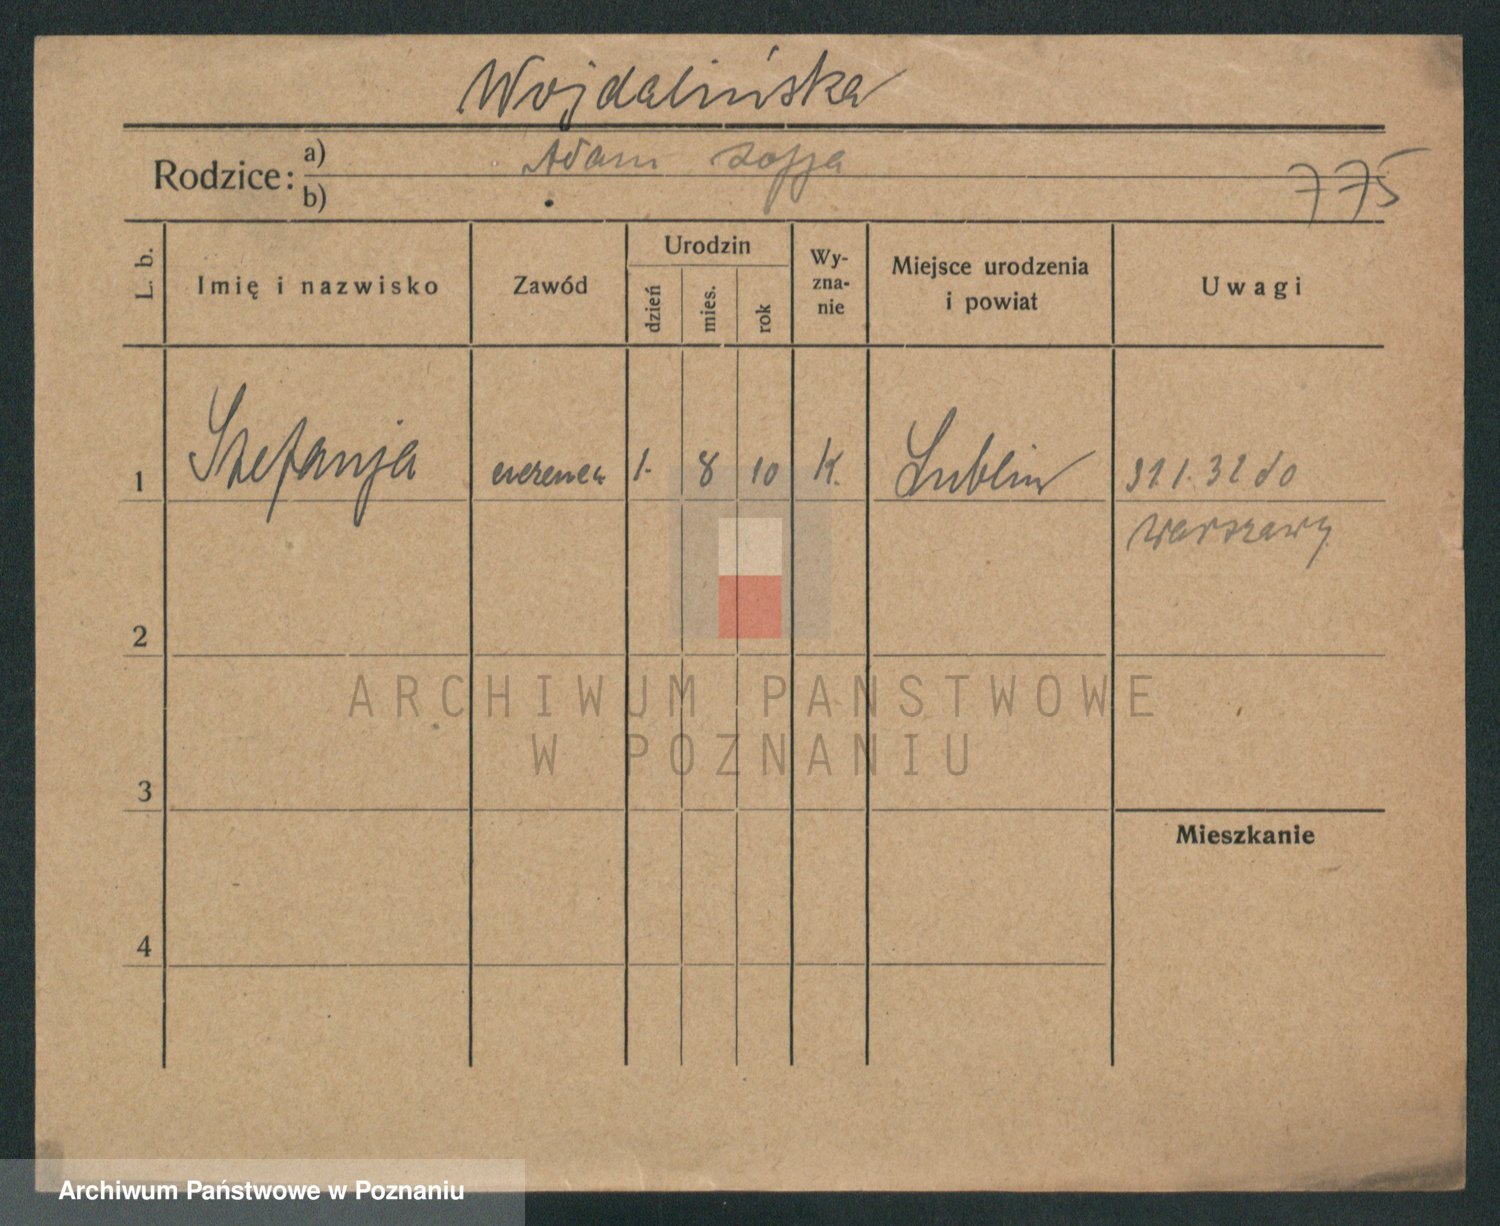 Wojdalińska
Rodzice: a) Adam Zofja
b)
775
L. b. Imię i nazwisko Zawód Urodzin dzień mies. rok Wy-zna-nie Miejsce urodzenia i powiat Uwagi
1 Stefanja 1. 8 10 K. Lublin 31.1.32 do
Warszawy
2
3
Mieszkanie
4
ARCHIWUM PAŃSTWOWE
W POZNANIU
Archiwum Państwowe w Poznaniu